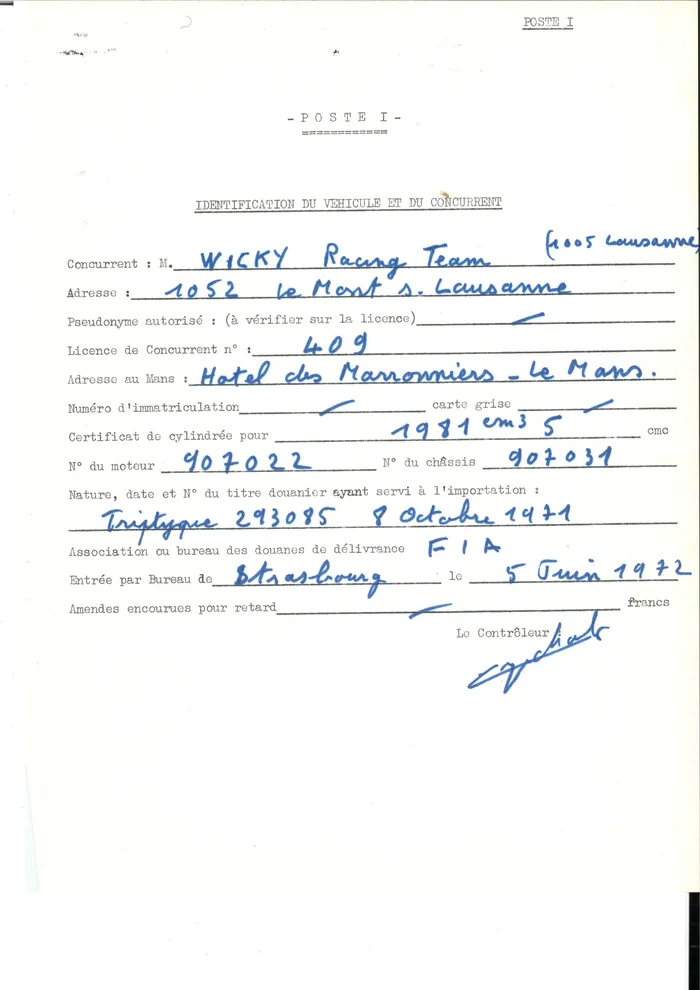 POSTE I
- P O S T E I -
============
IDENTIFICATION DU VEHICULE ET DU CONCURRENT
(1005 Lausanne)
Concurrent : M. WICKY Racing Team
Adresse : 1052 le Mont s. Lausanne
Pseudonyme autorisé : (à vérifier sur la licence) —
Licence de Concurrent n° : 409
Adresse au Mans : Hotel des Marronniers - Le Mans.
Numéro d'immatriculation — carte grise —
Certificat de cylindrée pour 1981 cm3 5 cmc
N° du moteur 907022 N° du châssis 907031
Nature, date et N° du titre douanier ayant servi à l'importation :
Triptyque 293085 8 Octobre 1971
Association ou bureau des douanes de délivrance F I A
Entrée par Bureau de Strasbourg le 5 Juin 1972
Amendes encourues pour retard — francs
Le Contrôleur :